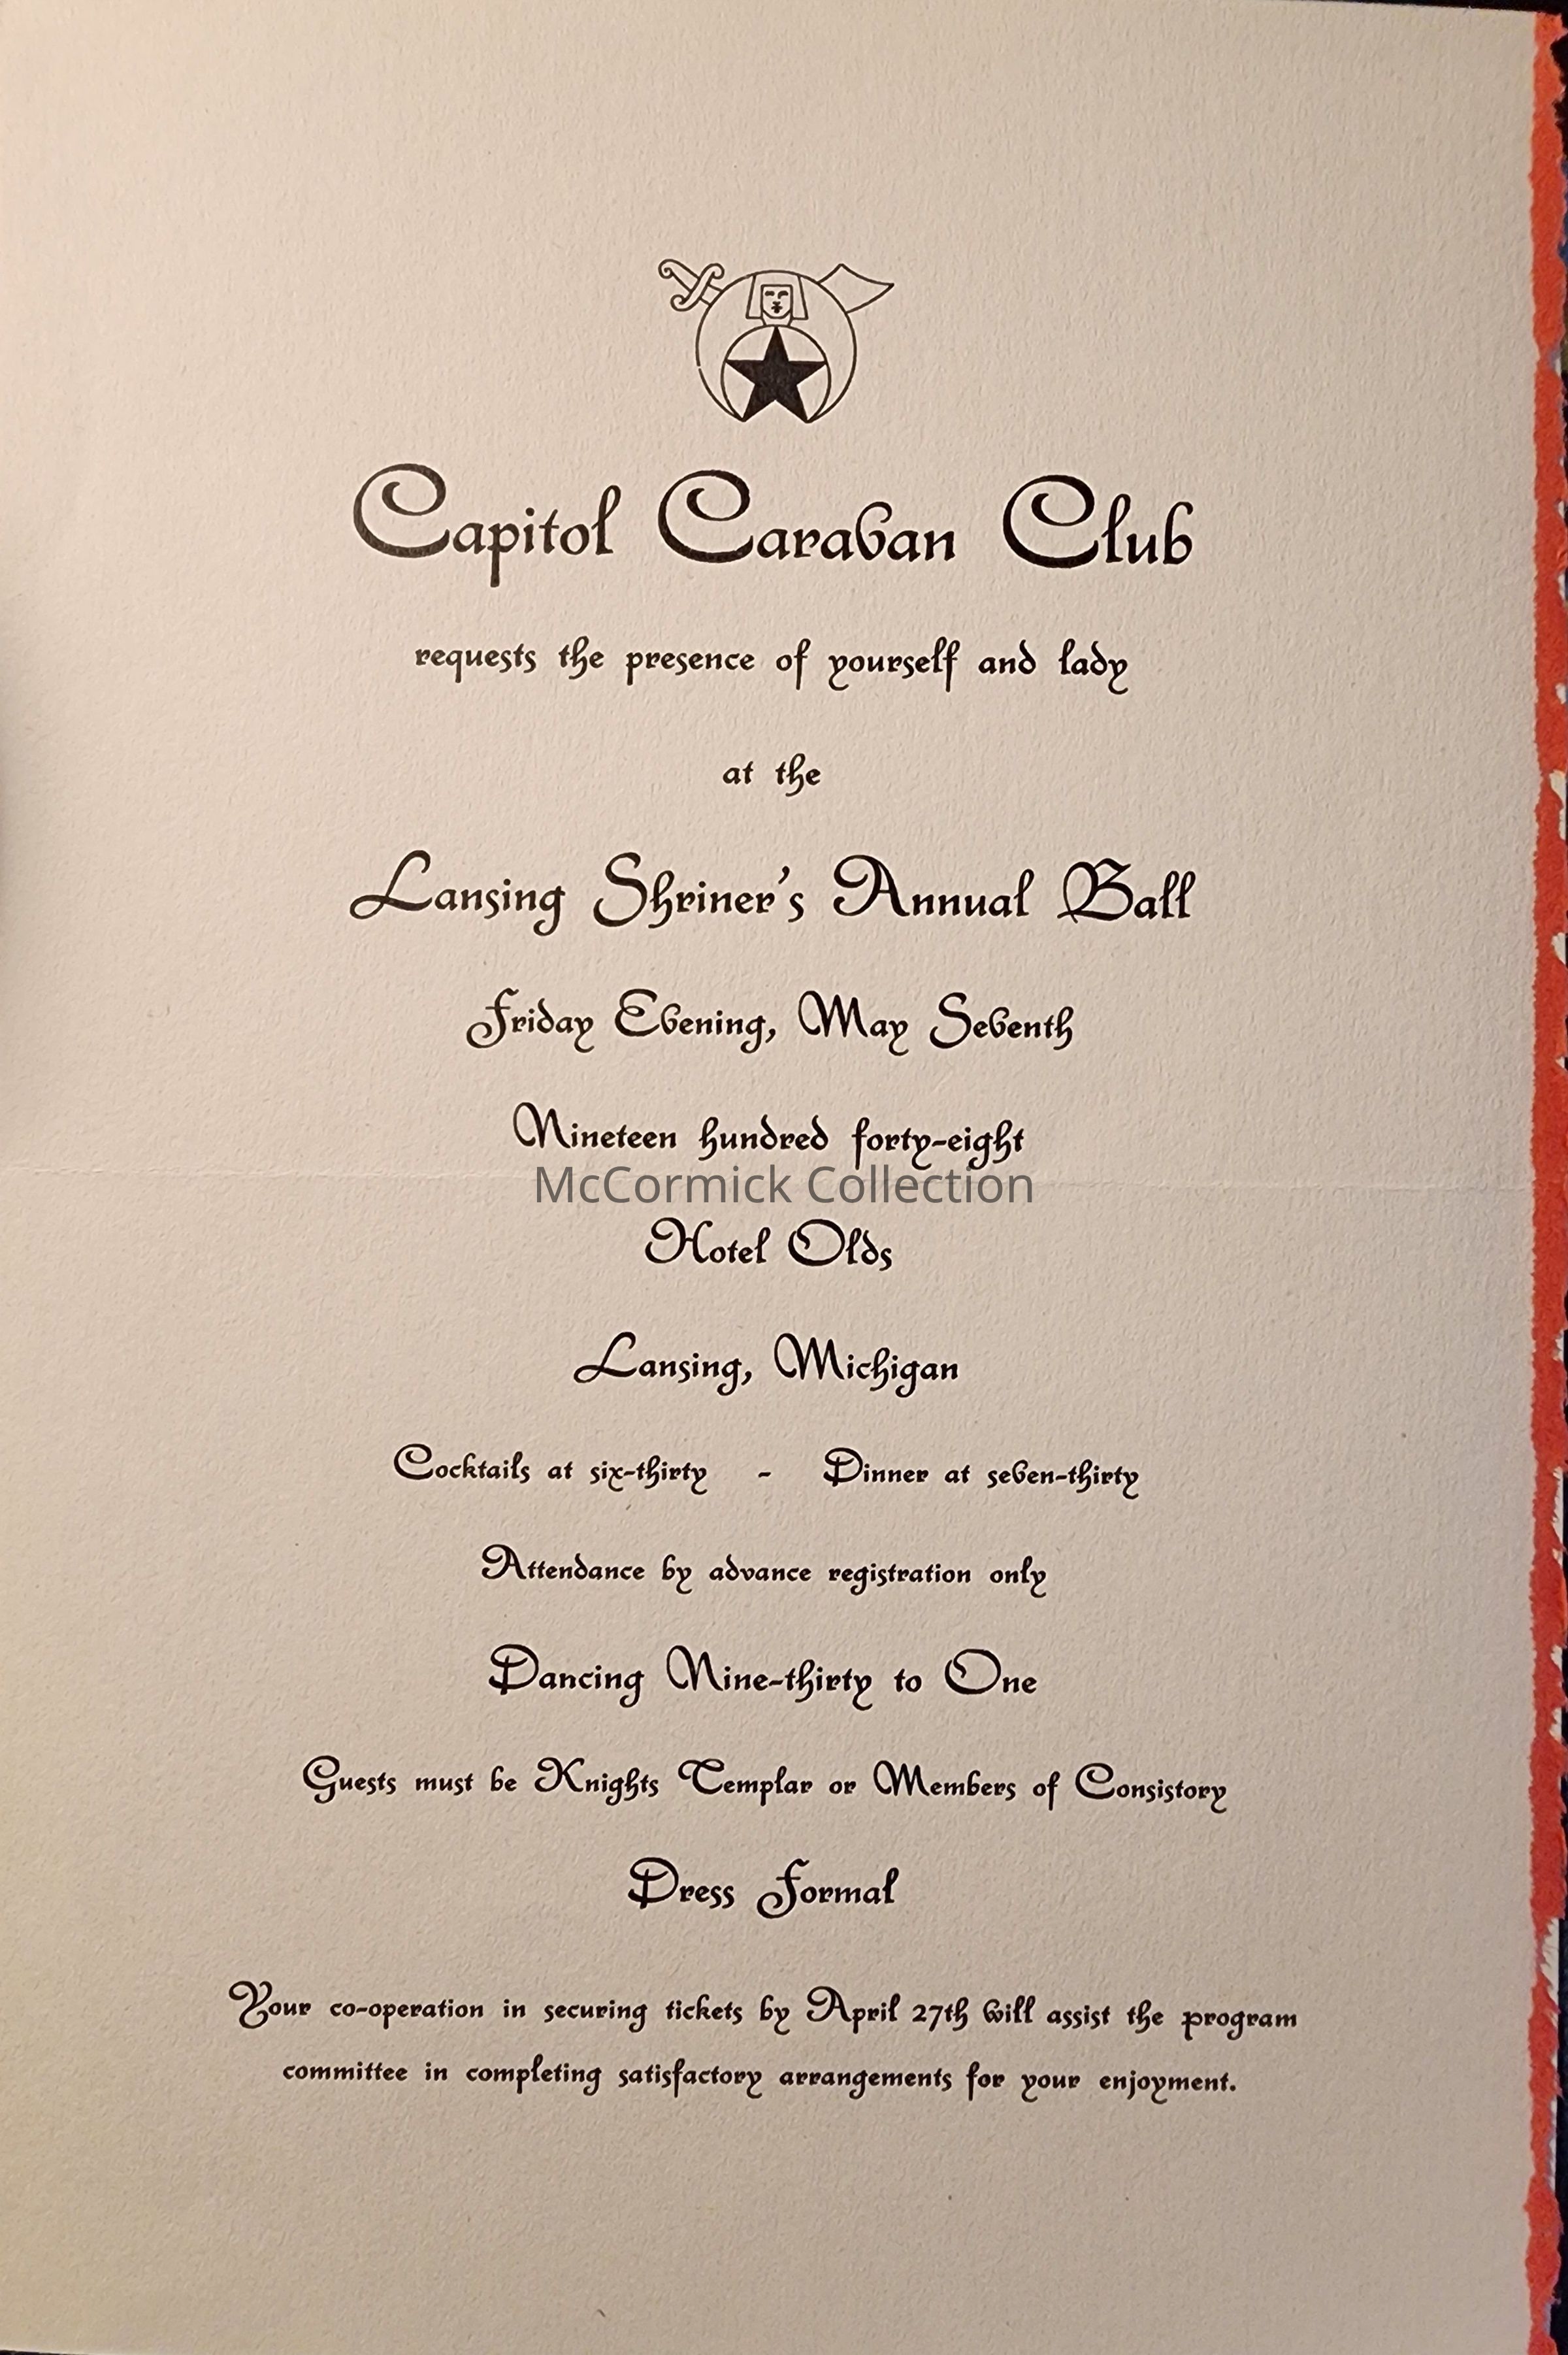 Capitol Caravan Club
requests the presence of yourself and lady
at the
Lansing Shriner's Annual Ball
Friday Evening, May Seventh
Nineteen hundred forty-eight
McCormick Collection
Hotel Olds
Lansing, Michigan
Cocktails at six-thirty - Dinner at seven-thirty
Attendance by advance registration only
Dancing Nine-thirty to One
Guests must be Knights Templar or Members of Consistory
Dress Formal
Your co-operation in securing tickets by April 27th will assist the program
committee in completing satisfactory arrangements for your enjoyment.